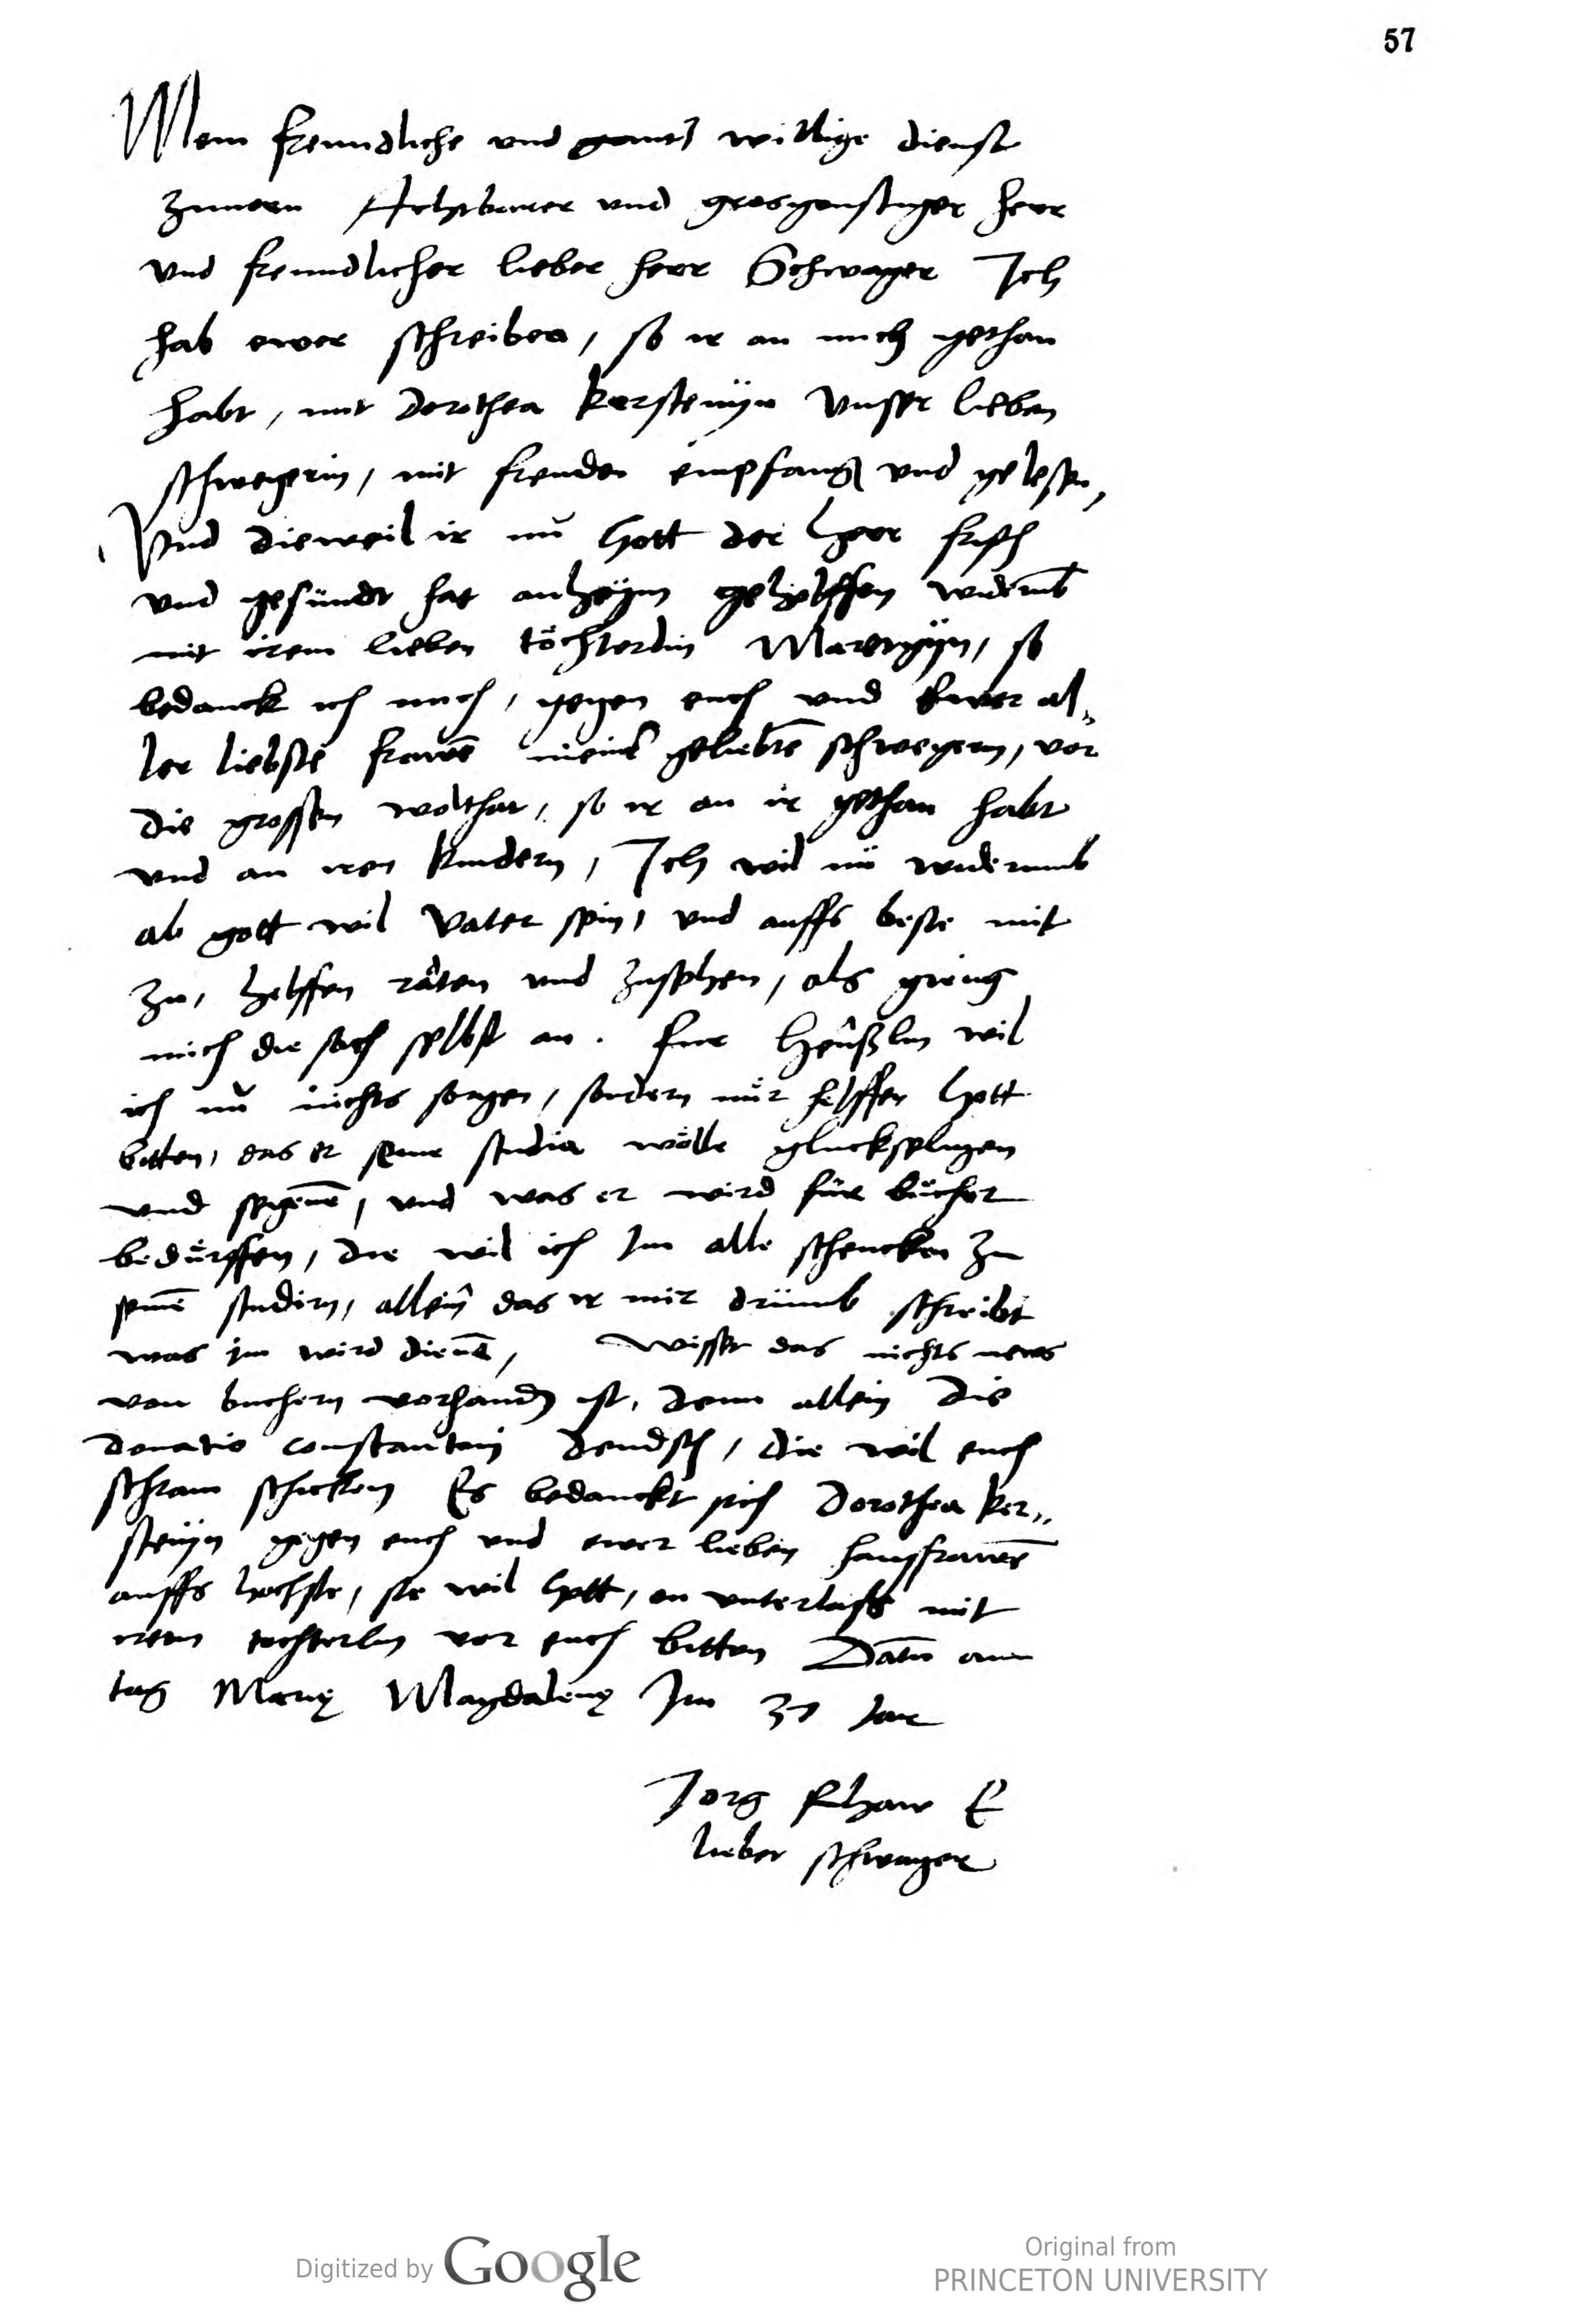 57
Mein freundliche und gantz willige dienst
zuuorn Achtbarer und grosgonstiger herr
und freundlicher lieber herr Schwager Ich
hab ewer schreiben, so ir an mich gethan
habt, mit Dorothea Kerstenÿn Unser lieben
schwegerin, mit freuden empfangen und gelesen,
Und dieweil ir nŭ Gott der Herr frisch
und gesundt hat anheÿm geholffen widerumb
mit irem lieben töchterlin, so
bedanck ich mich, gegen euch und Ewer al„
ler liebste frawē meinē geliebtē schwegern, vor
die grossen wolthat, so ir an ir gethan habt
und an iren kindern, Ich wil nŭ widerumb
ab gott wil Vater sein, und auffs beste mit
zu, helffen råten und zusehen, als gieng
mich die sach selbst an. Fur Henßlin wil
ich nŭ nichts sorgen, sondern nůr helffen Gott
bitten, das er seine studia wölle gluckseligen
und segenē, und was er wird für bücher
bedürffen, die wil ich Im alle schencken zu
seinē studirn, allein das ir mir drumb schreibt
was im wird dienē, Wisset das nichts news
von buchern vorhanden ist, denn allein die
donatio constantini deudsch, die wil euch
schram schicken Es bedanckt sich Dorothea Ker„
stenÿn gegen euch und ewer lieben hausfrawē
auffs hochste, sie wil Gott, on unterlass mit
irem tochterlin vor euch bitten Datū am
tag Marię Magdalenę Im 37 Jar
Jorg Rhaw E
lieber schwager
Digitized by Google
Original from
PRINCETON UNIVERSITY